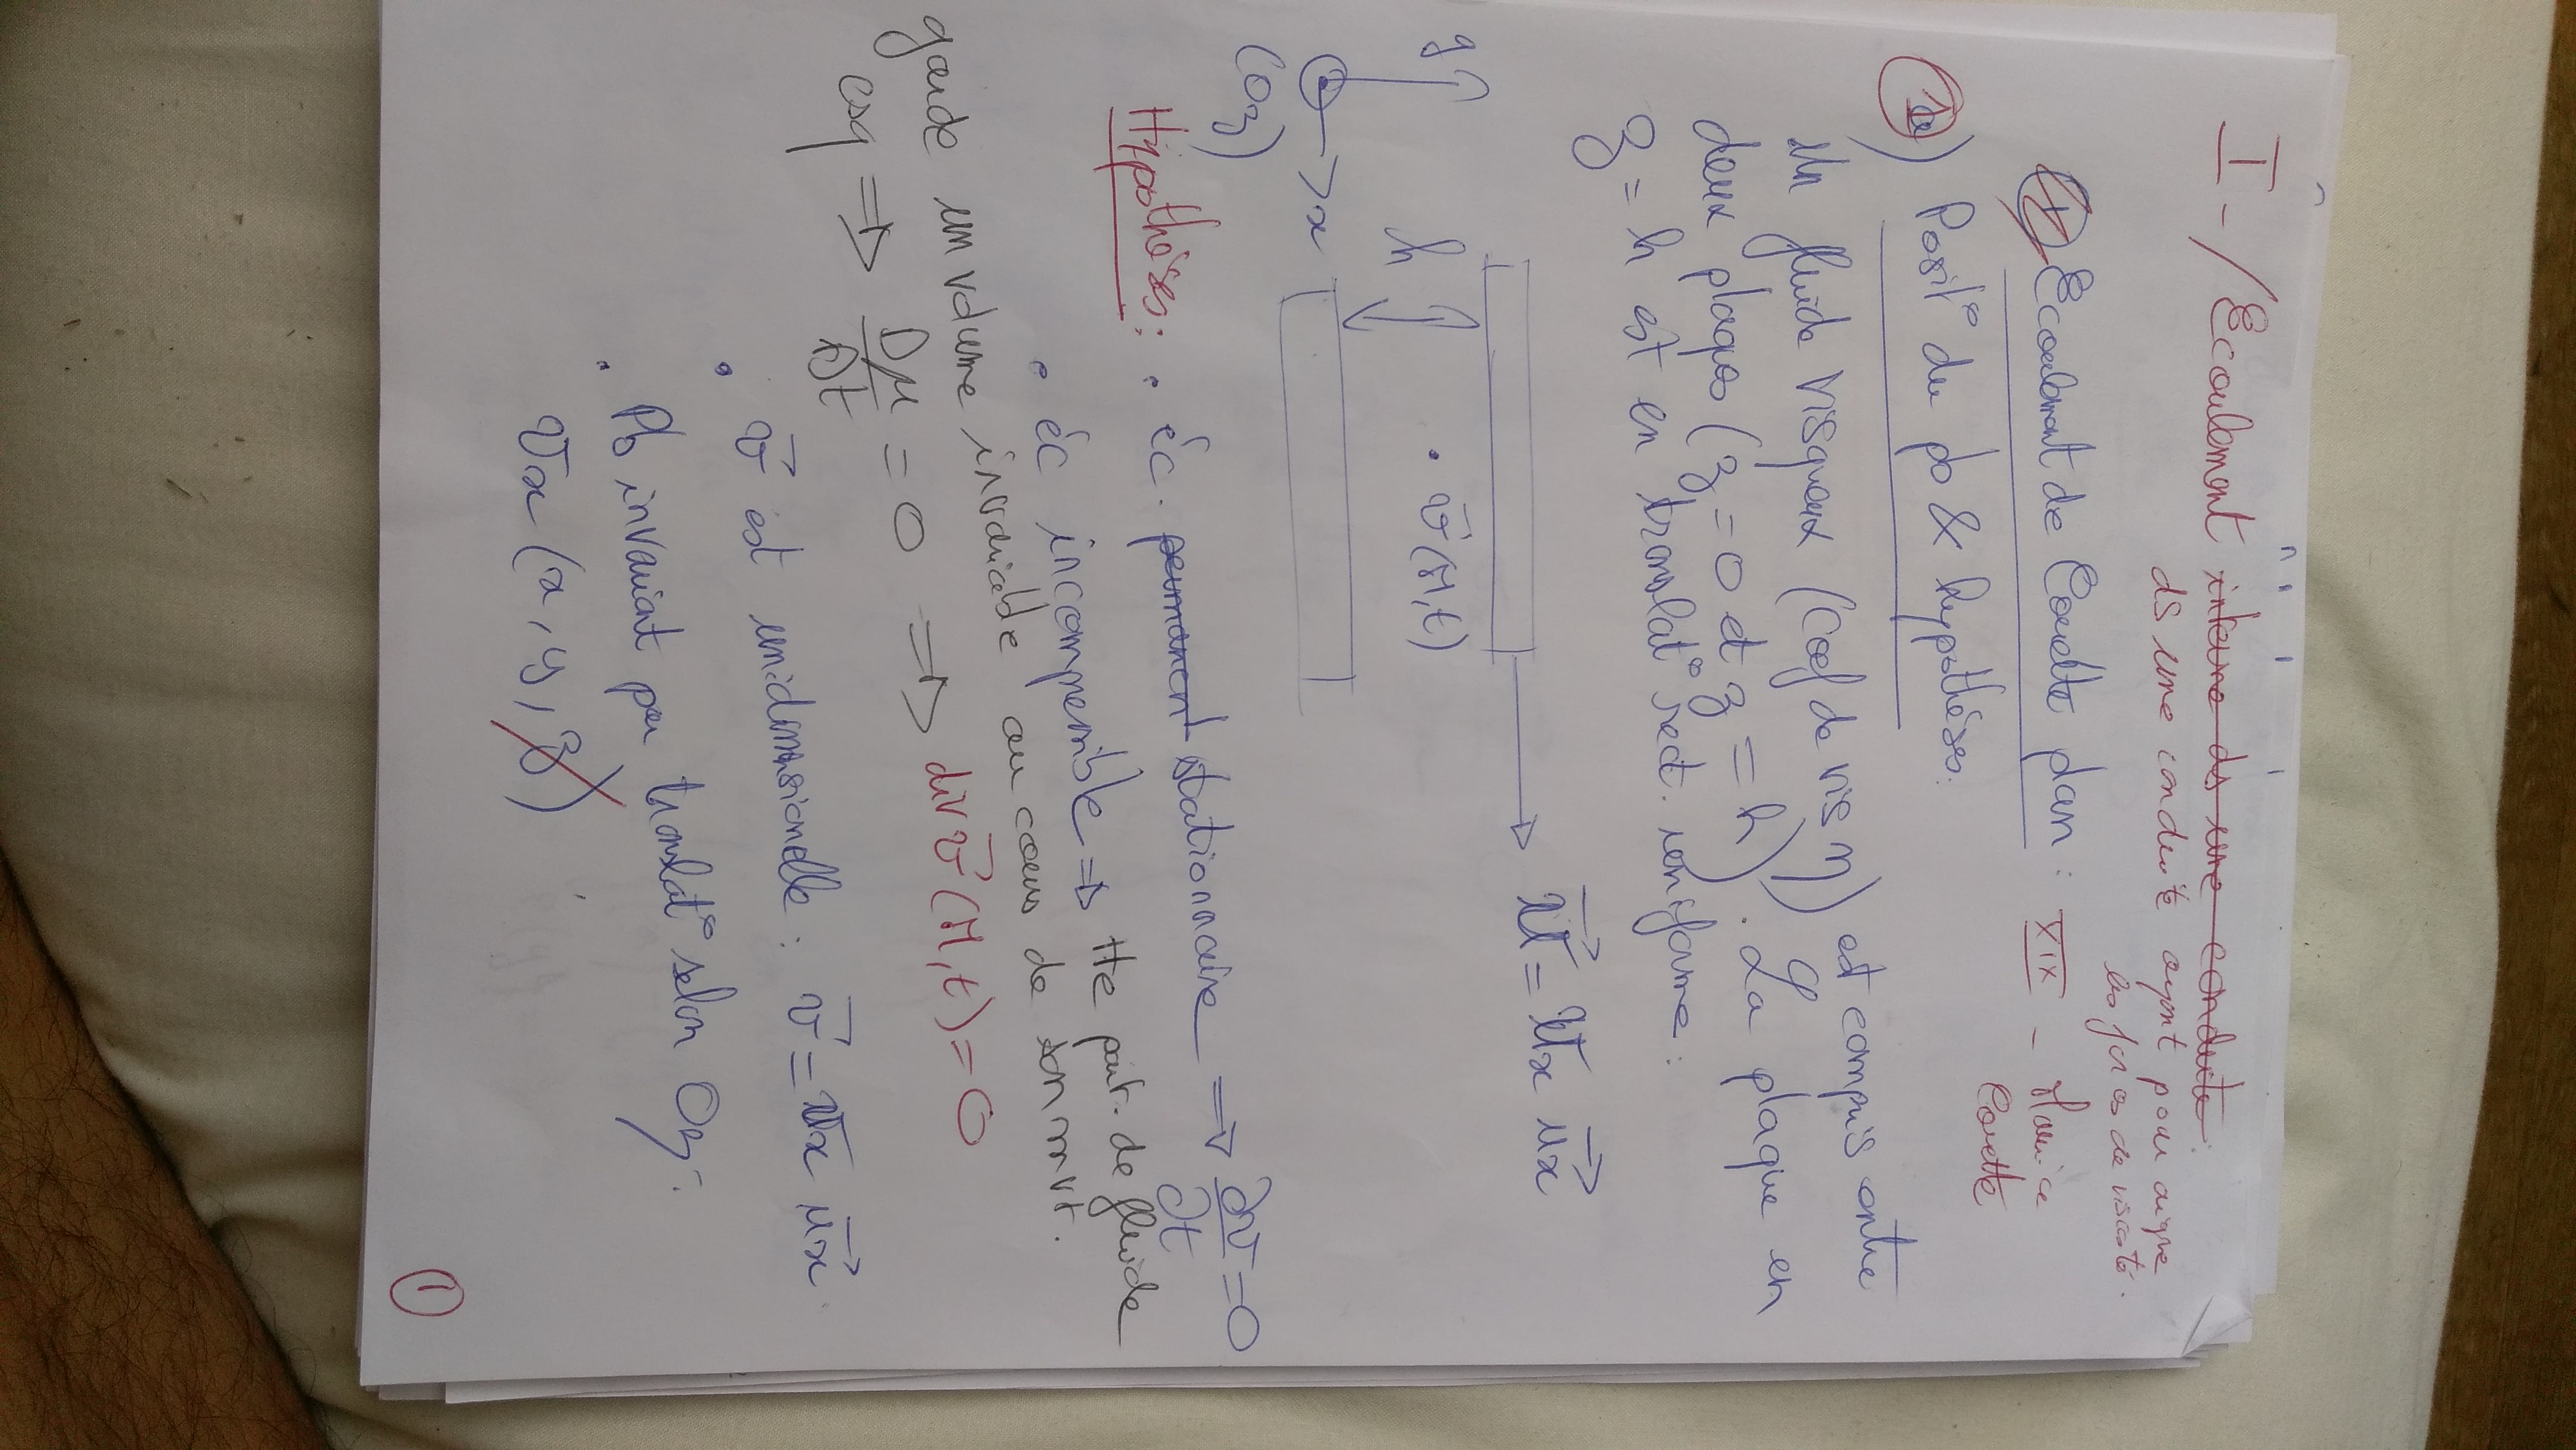 I-/ Ecoulement interne ds une conduite.
ds une conduite ayant pour origine
les forces de viscosité.
1) Ecoulement de Couette plan : XIX - Maurice
Couette
1a) Posit° du pb & hypothèses.
Un fluide visqueux (coef de vis η) est compris entre
deux plaques (z = 0 et z = h). La plaque en
z = h est en translat° rect. uniforme :
U⃗ = Ux u⃗x
y
h
. v⃗(M,t)
x
(Oz)
Hypothèses : • éc. permanent stationnaire ⇒ ∂v/∂t = 0
• éc incompressible ⇒ tte part. de fluide
garde un volume invariable au cours de son mvt.
csq ⇒ Dμ/Dt = 0 ⇒ div v⃗(M,t) = 0
• v⃗ est unidimensionnelle : v⃗ = vx u⃗x
• Pb invariant par translat° selon Oz :
vx (x, y, z)
1